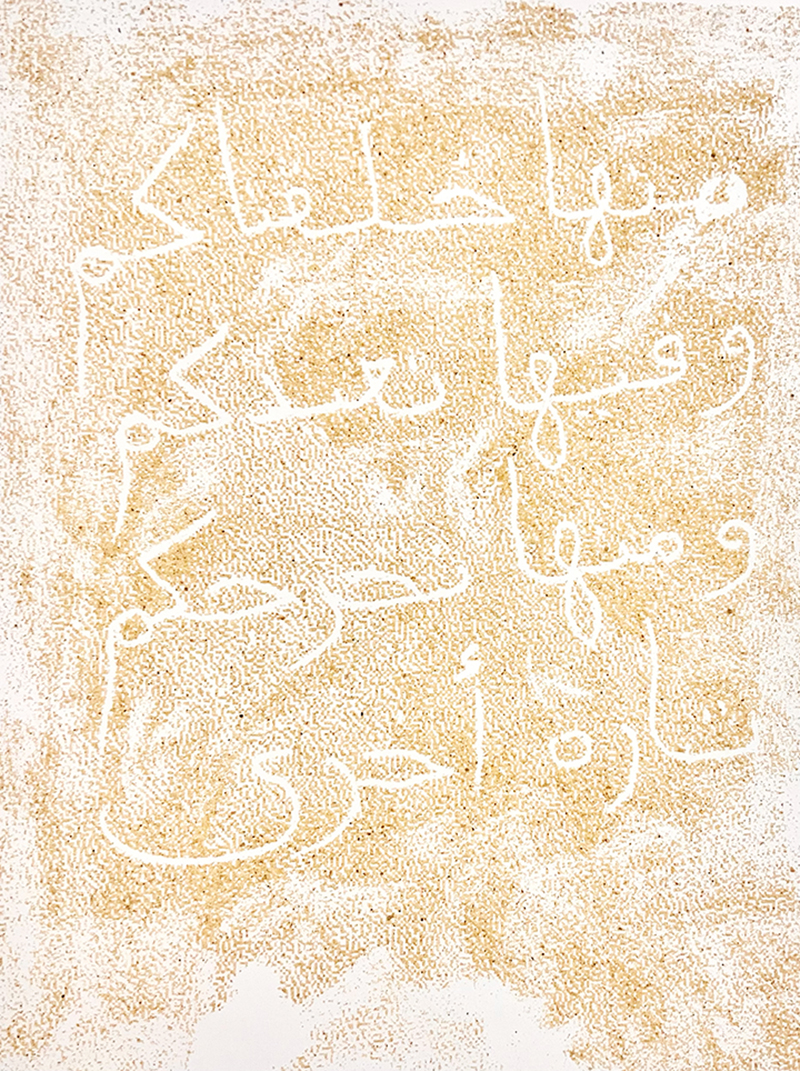 منها خلقناكم
وفيها نعيدكم
ومنها نخرجكم
تارة أخرى